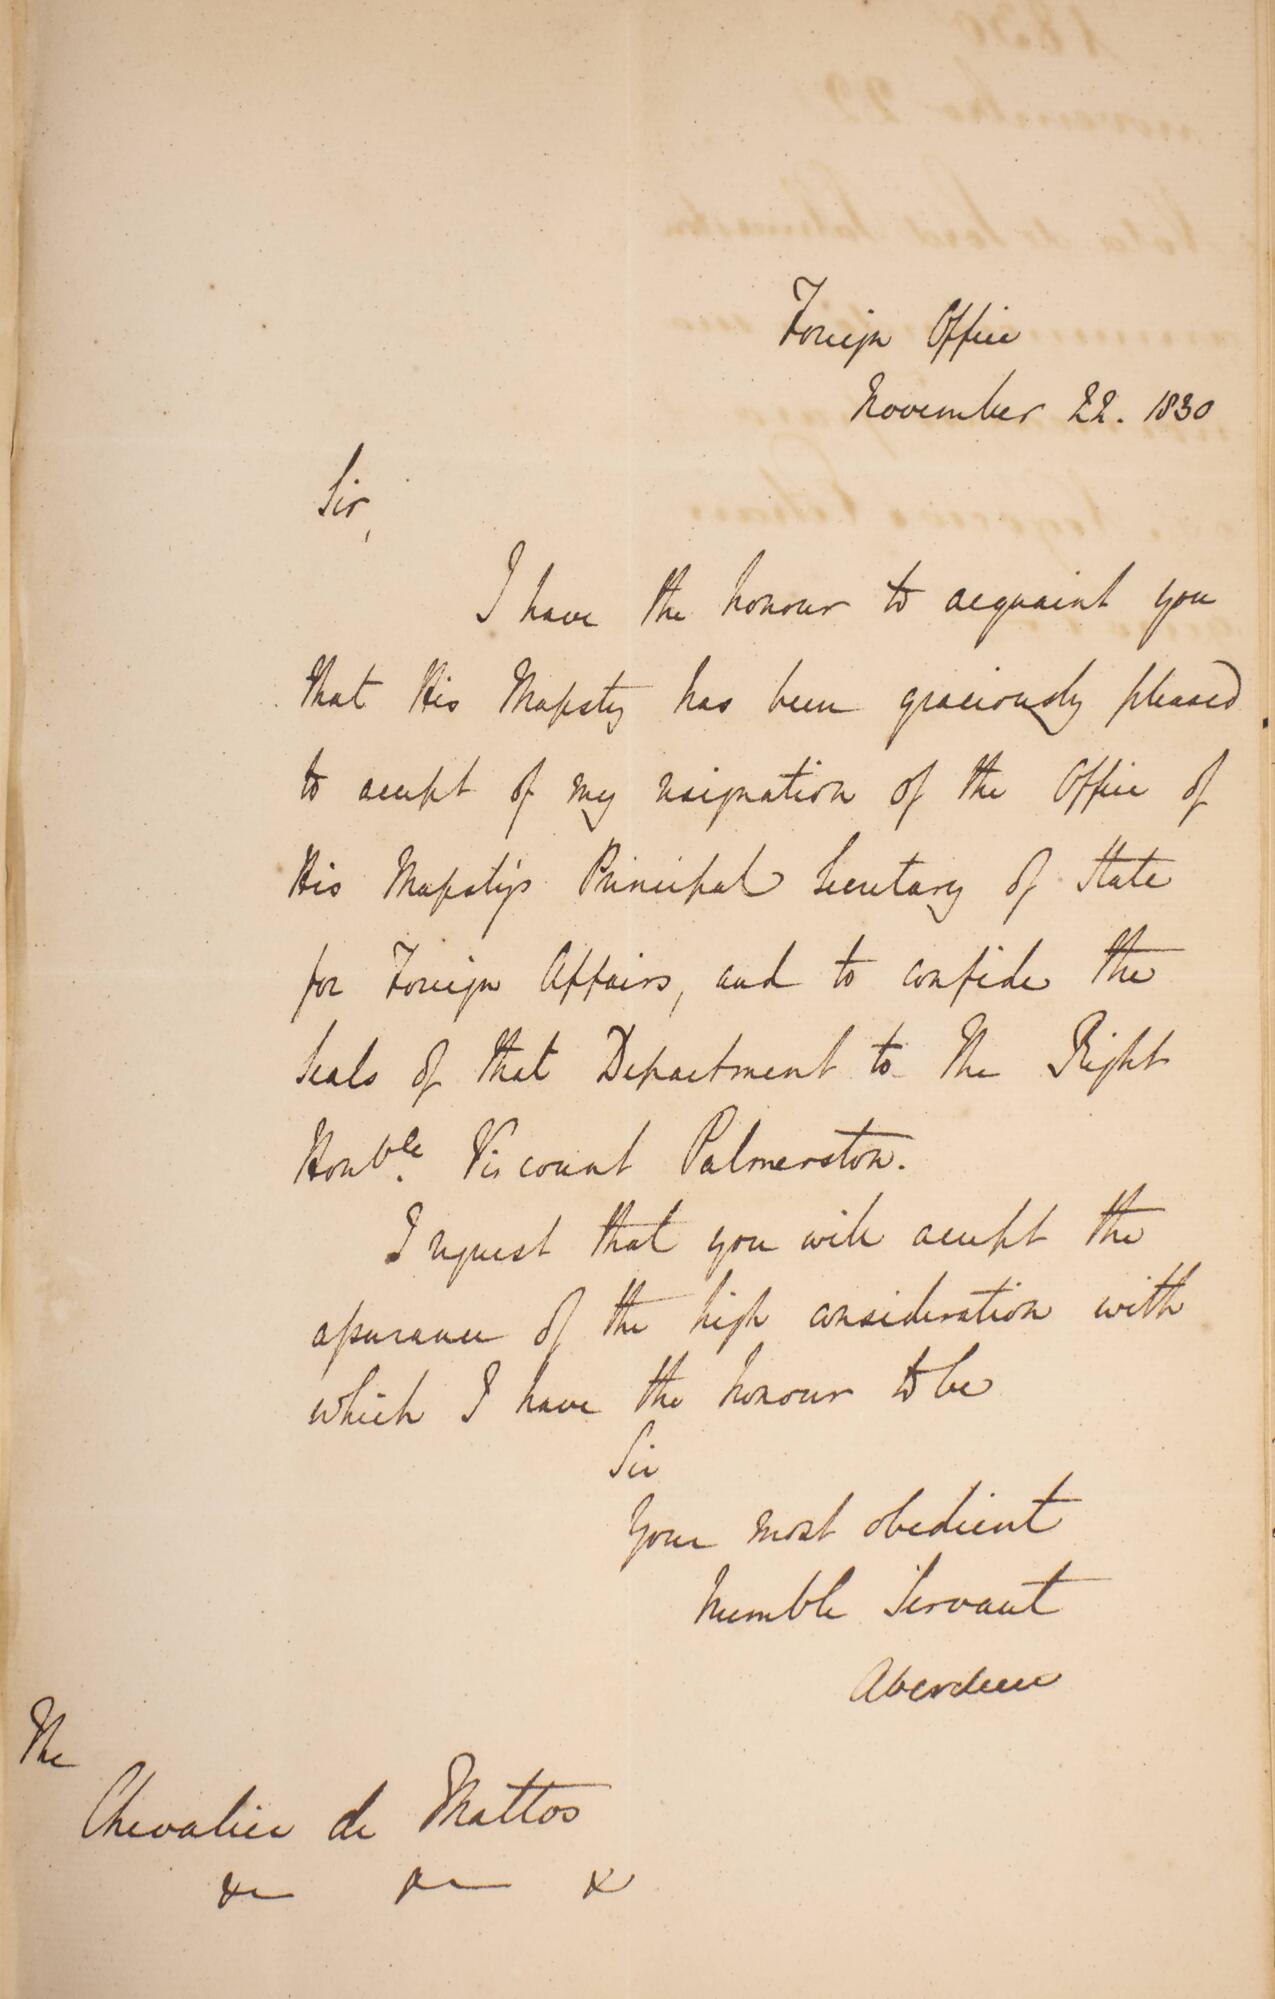 Foreign Office
November 22. 1830
Sir,
I have the honour to acquaint you
that His Majesty has been graciously pleased
to accept of my resignation of the Office of
His Majesty's Principal Secretary of State
for Foreign Affairs, and to confide the
Seals of that Department to The Right
Honble. Viscount Palmerston.
I request that you will accept the
assurance of the high consideration with
which I have the honour to be
Sir
Your most obedient
humble Servant
Aberdeen
The
Chevalier de Mattos
&c &c &